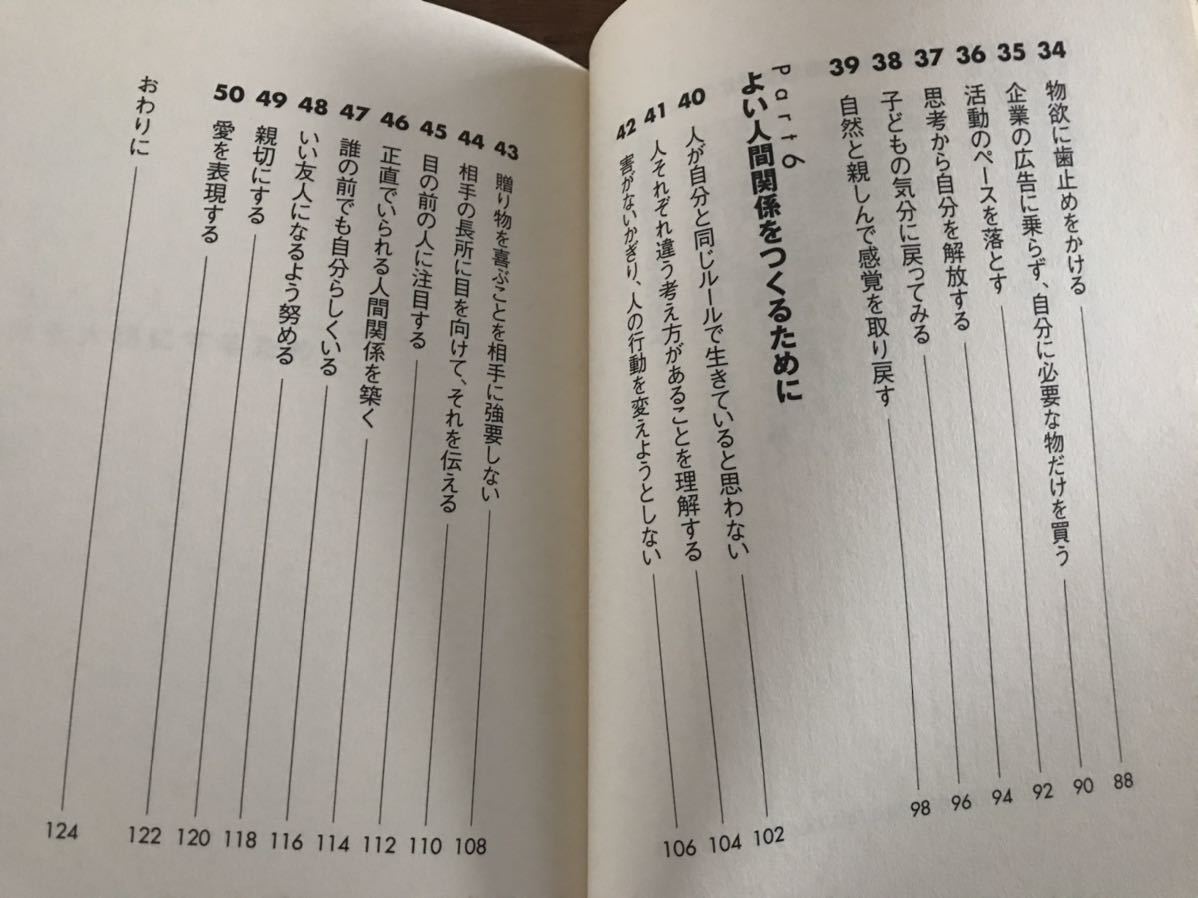 34 物欲に歯止めをかける 88
35 企業の広告に乗らず、自分に必要な物だけを買う 90
36 活動のペースを落とす 92
37 思考から自分を解放する 94
38 子どもの気分に戻ってみる 96
39 自然と親しんで感覚を取り戻す 98
Part6
よい人間関係をつくるために
40 人が自分と同じルールで生きていると思わない 102
41 人それぞれ違う考え方があることを理解する 104
42 害がないかぎり、人の行動を変えようとしない 106
43 贈り物を喜ぶことを相手に強要しない 108
44 相手の長所に目を向けて、それを伝える 110
45 目の前の人に注目する 112
46 正直でいられる人間関係を築く 114
47 誰の前でも自分らしくいる 116
48 いい友人になるよう努める 118
49 親切にする 120
50 愛を表現する 122
おわりに 124